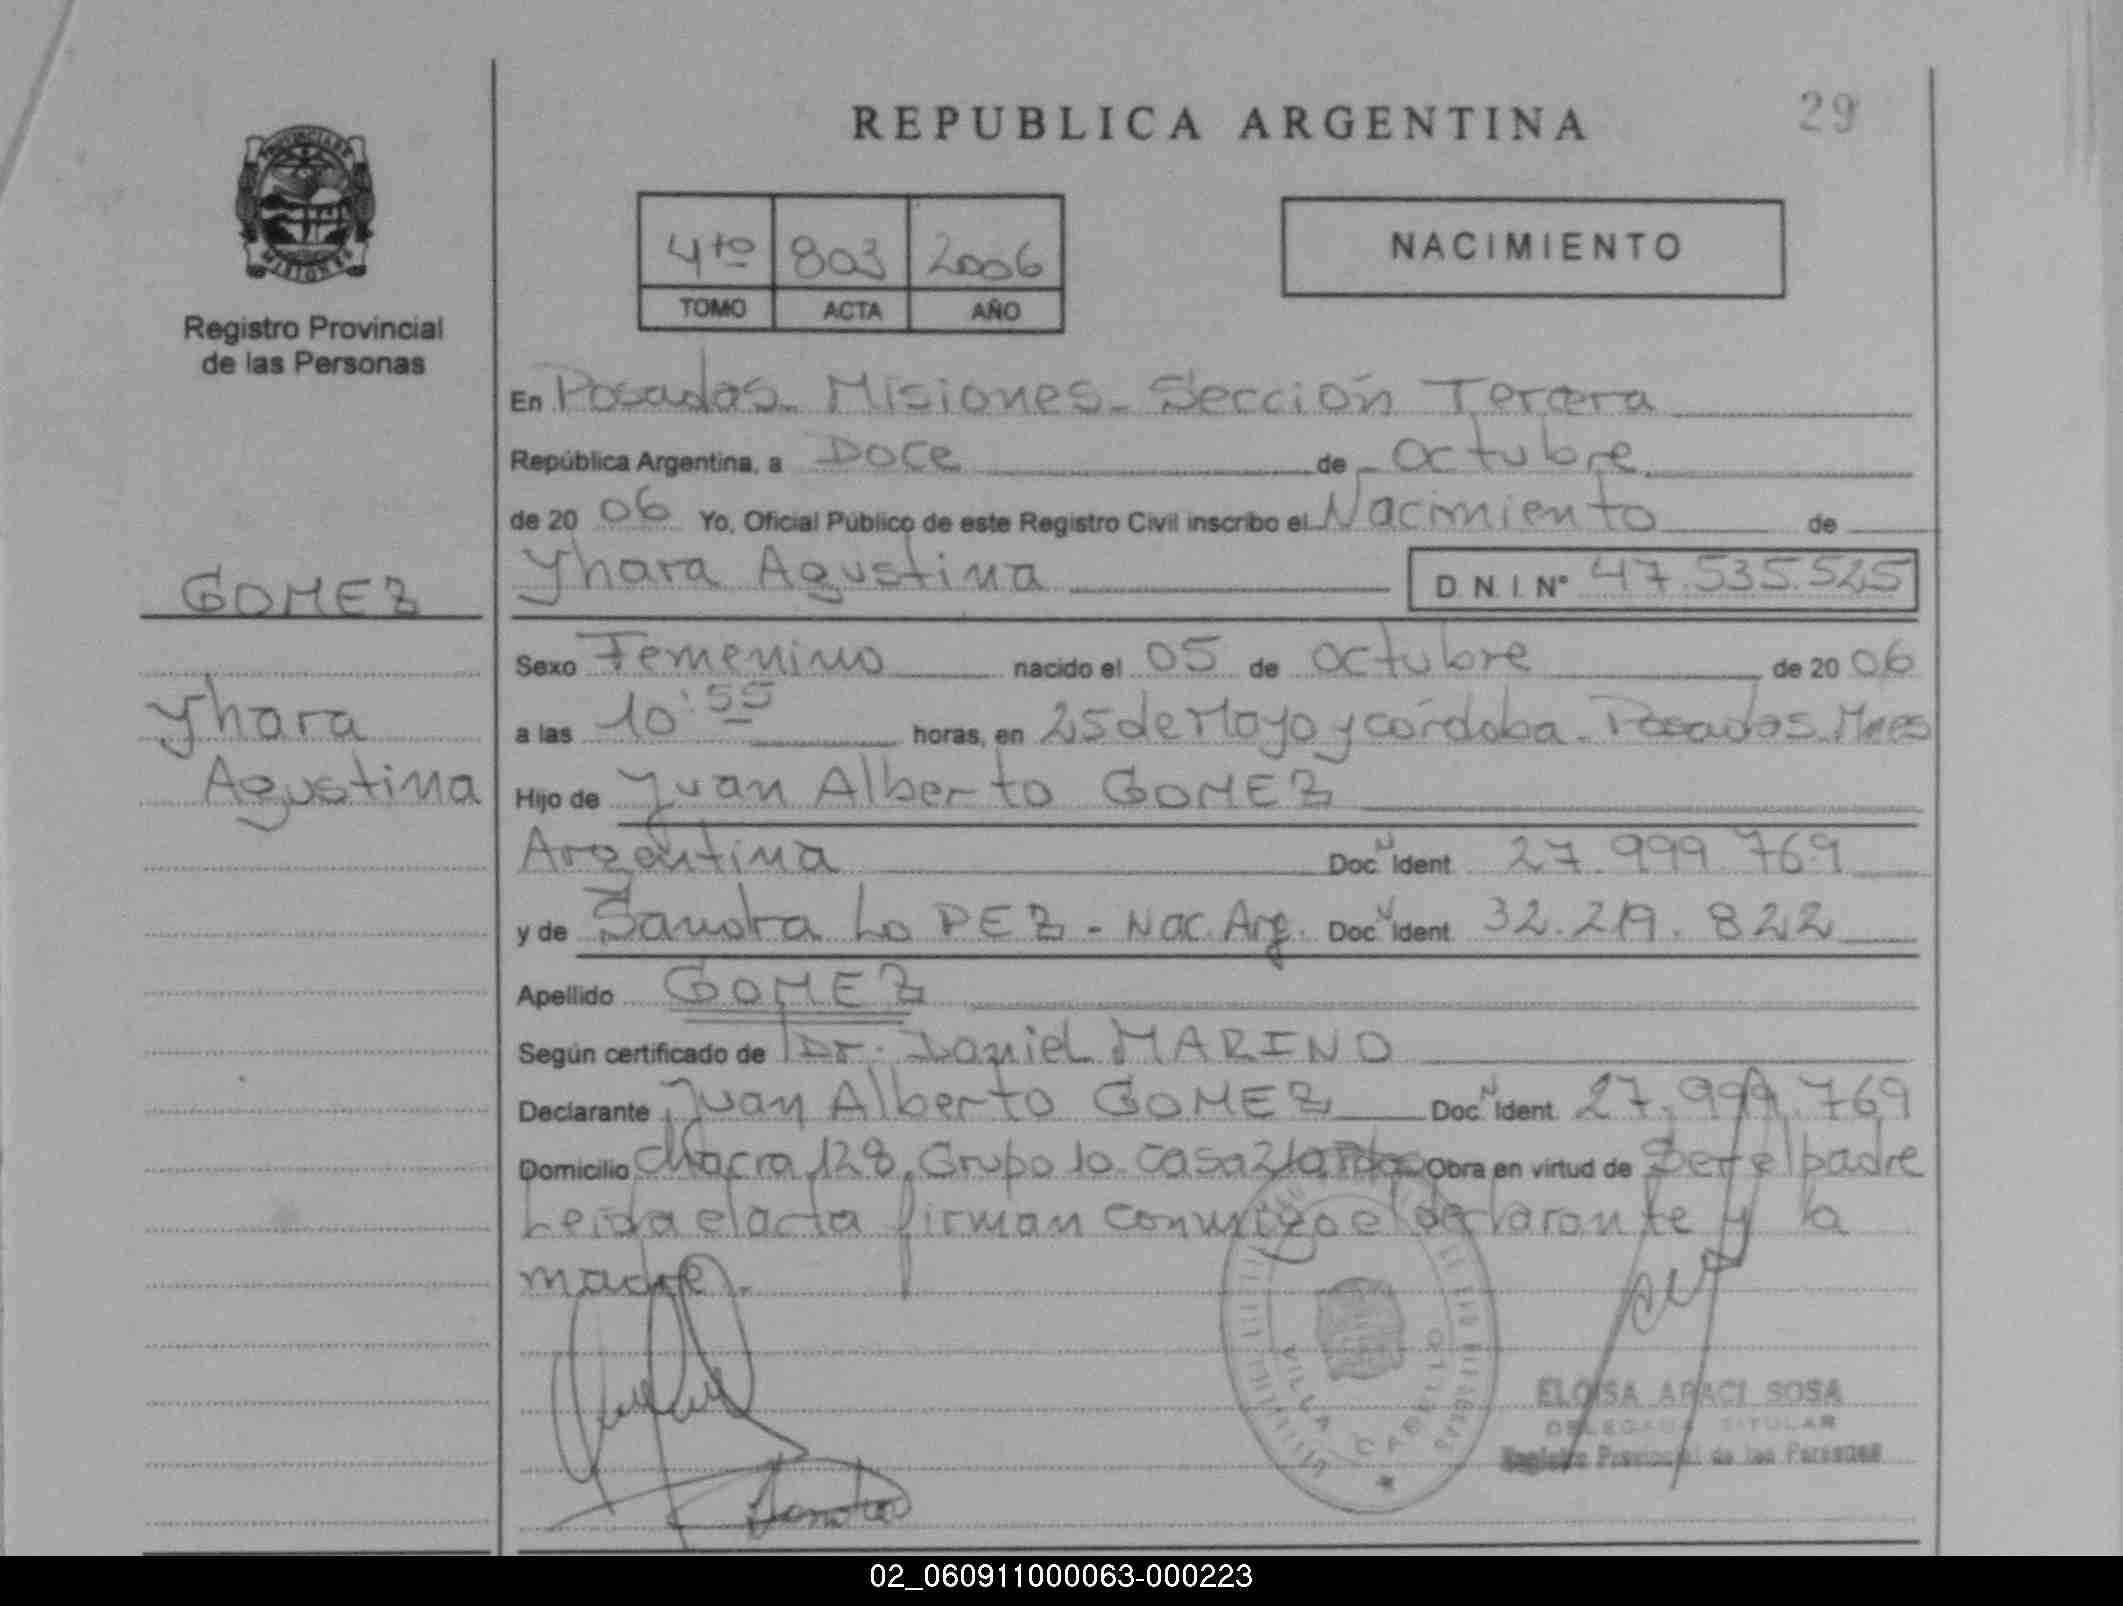 REPUBLICA ARGENTINA
29
PROVINCIA DE
MISIONES
Registro Provincial
de las Personas
4to 803 2006
TOMO ACTA AÑO
NACIMIENTO
En Posadas - Misiones - Sección Tercera
República Argentina, a Doce de octubre
de 2006 Yo, Oficial Público de este Registro Civil inscribo el Nacimiento de
GOMEZ
Yhara Agustina D.N.I. N° 47.535.525
Sexo Femenino nacido el 05 de octubre de 2006
Yhara
Agustina
a las 10:55 horas, en 25 de Mayo y córdoba - Posadas. Mnes
Hijo de Juan Alberto GOMEZ
Argentina Doc N Ident 27.999.769
y de Sandra LoPEZ - Nac. Arg. Doc N Ident 32.219.822
Apellido GOMEZ
Según certificado de Dr. Daniel MARINO
Declarante Juan Alberto GOMEZ Doc N Ident 27.999.769
Domicilio chacra 128, Grupo 10 casa Obra en virtud de Ser el padre
Leida el acta firman conmigo el declarante y la
madre.
VILLA CABELLO
ELOISA ARACI SOSA
DELEGADA TITULAR
Registro Provincial de las Personas
Sandra
02_060911000063-000223